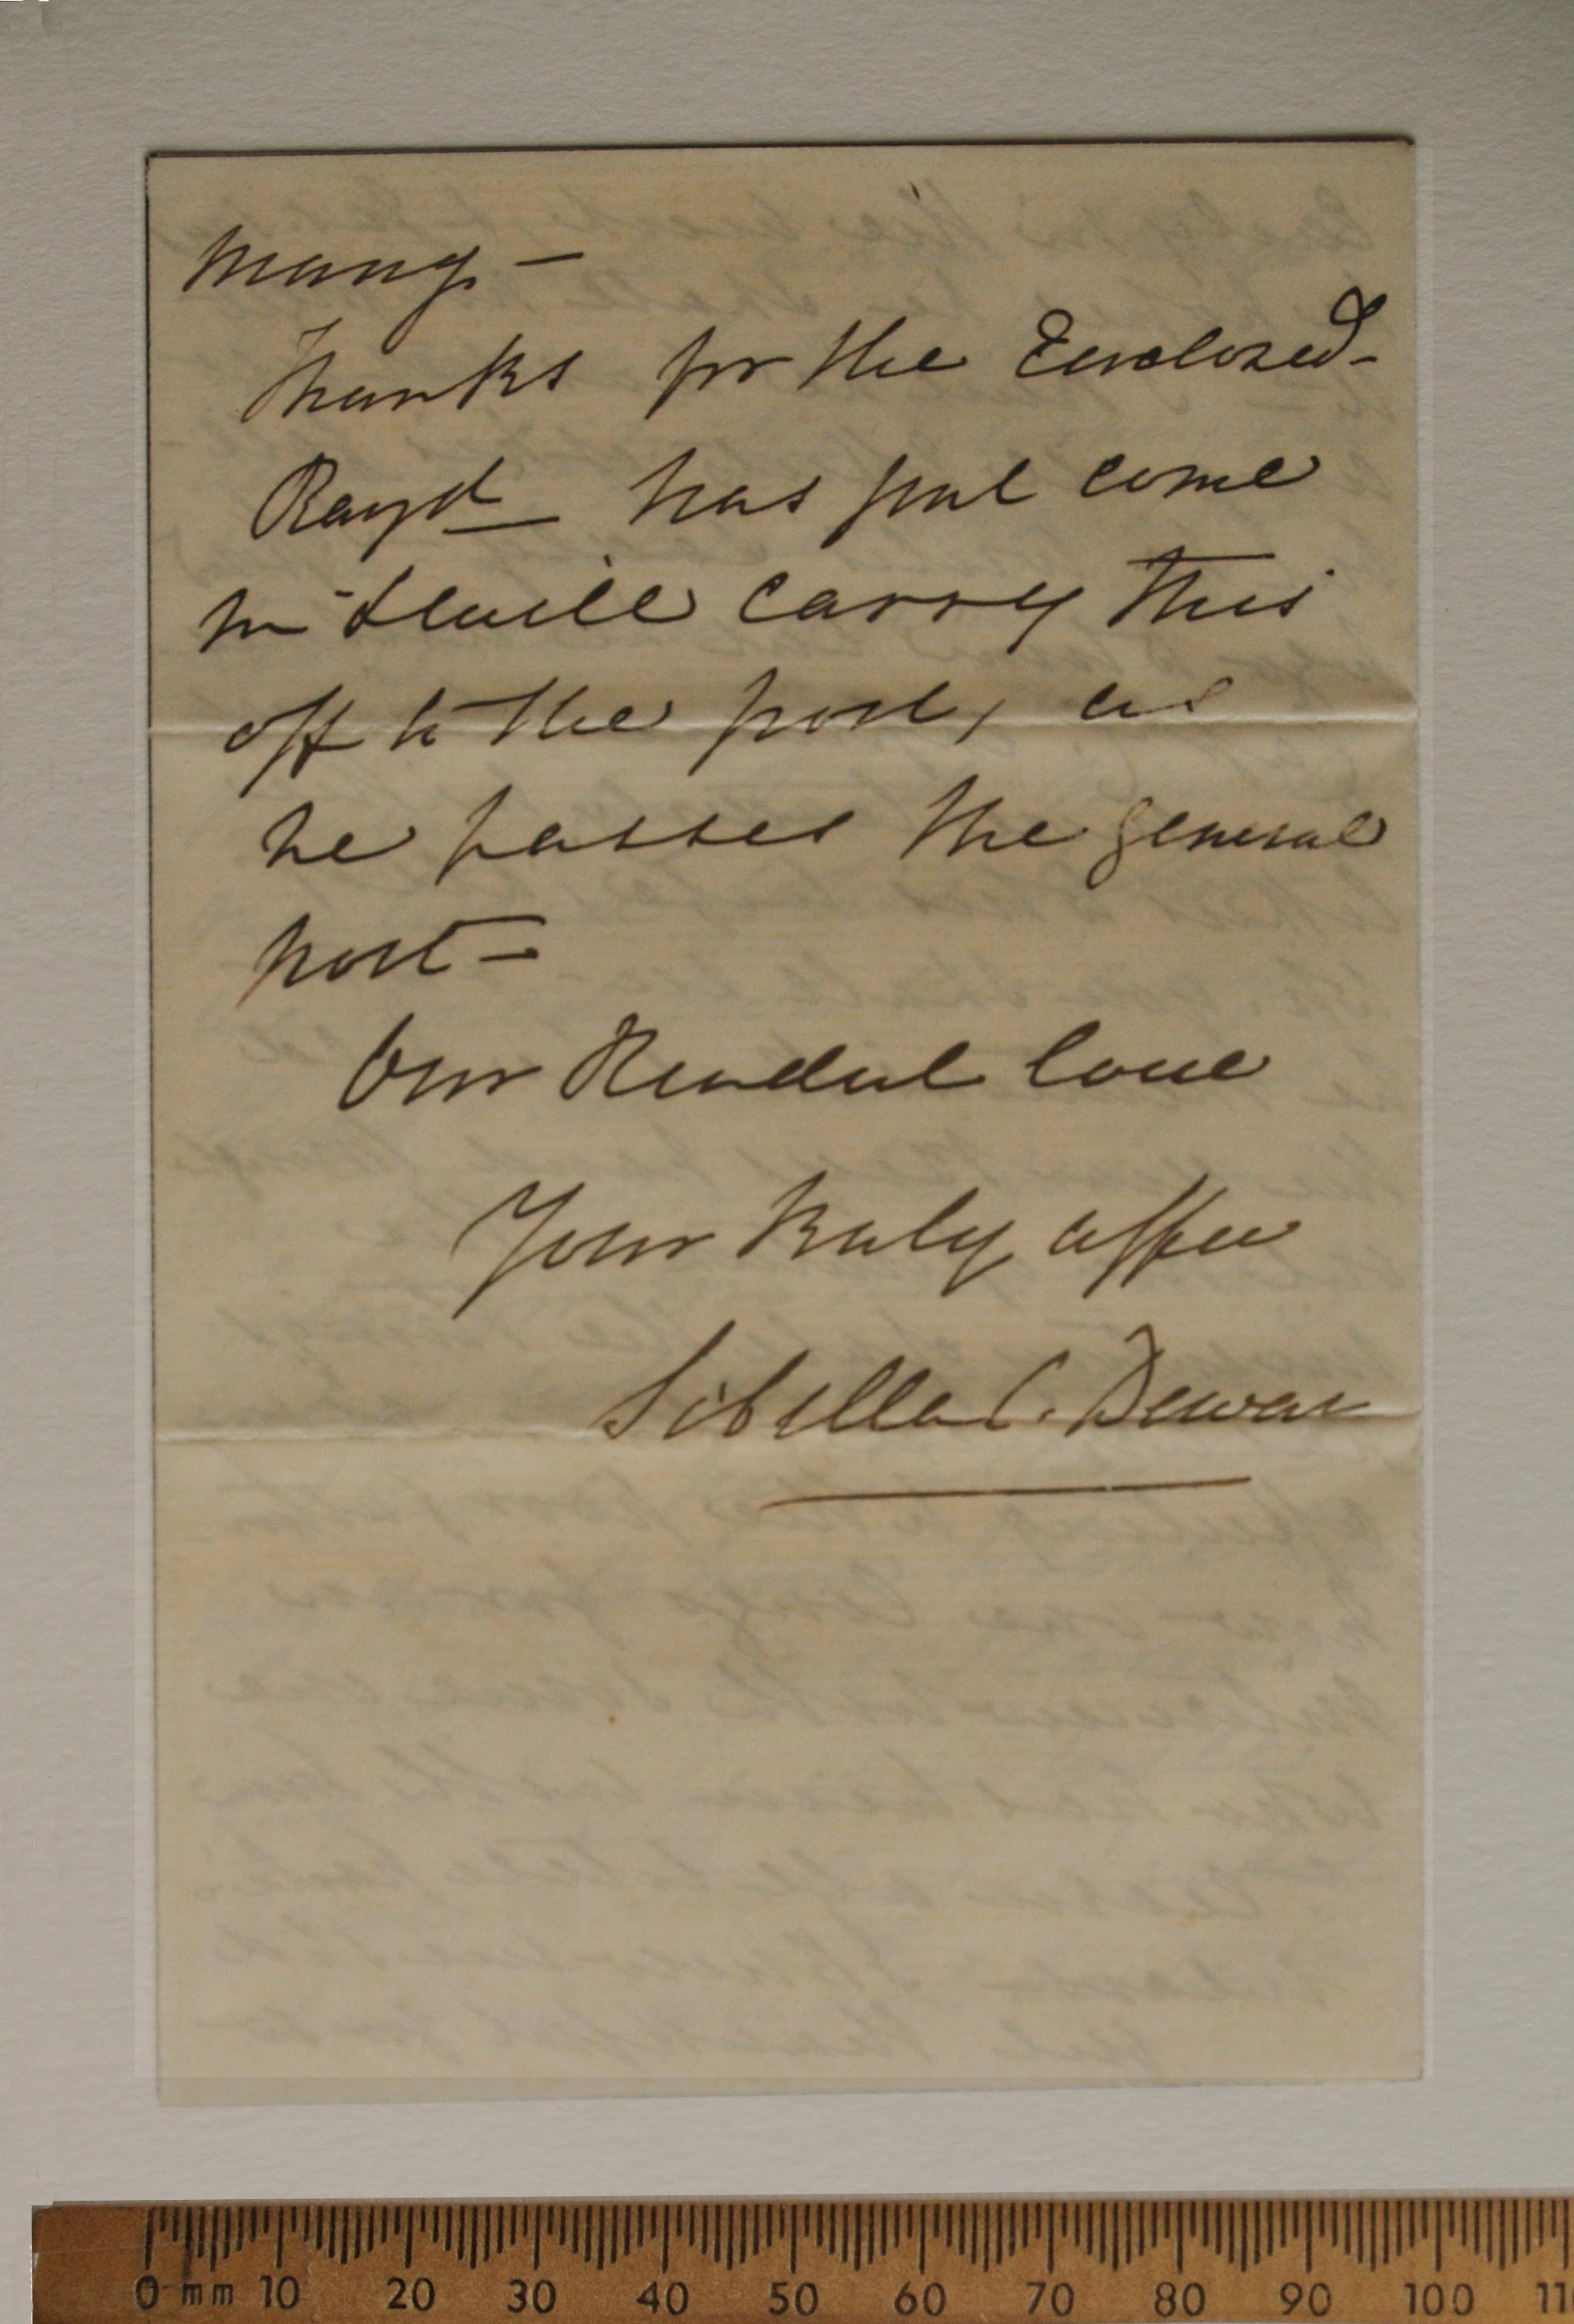 many —
Thanks for the Enclosed –
Rayd has just come
in & will carry this
off to the post, as
he passes the general
post –
Our Kindest love
Your truly affec
Sibella C. Dewar
0 mm 10 20 30 40 50 60 70 80 90 100 11